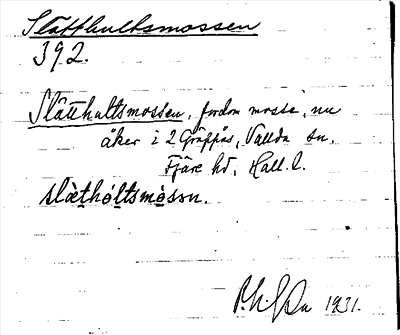 Slätthultsmossen
392.
Slätthultsmossen, fordom mosse, nu
åker i 2 Gräppås, Vallda sn,
Fjäre hd, Hall. l.
slæ̀thòltsmòsən.
1931.